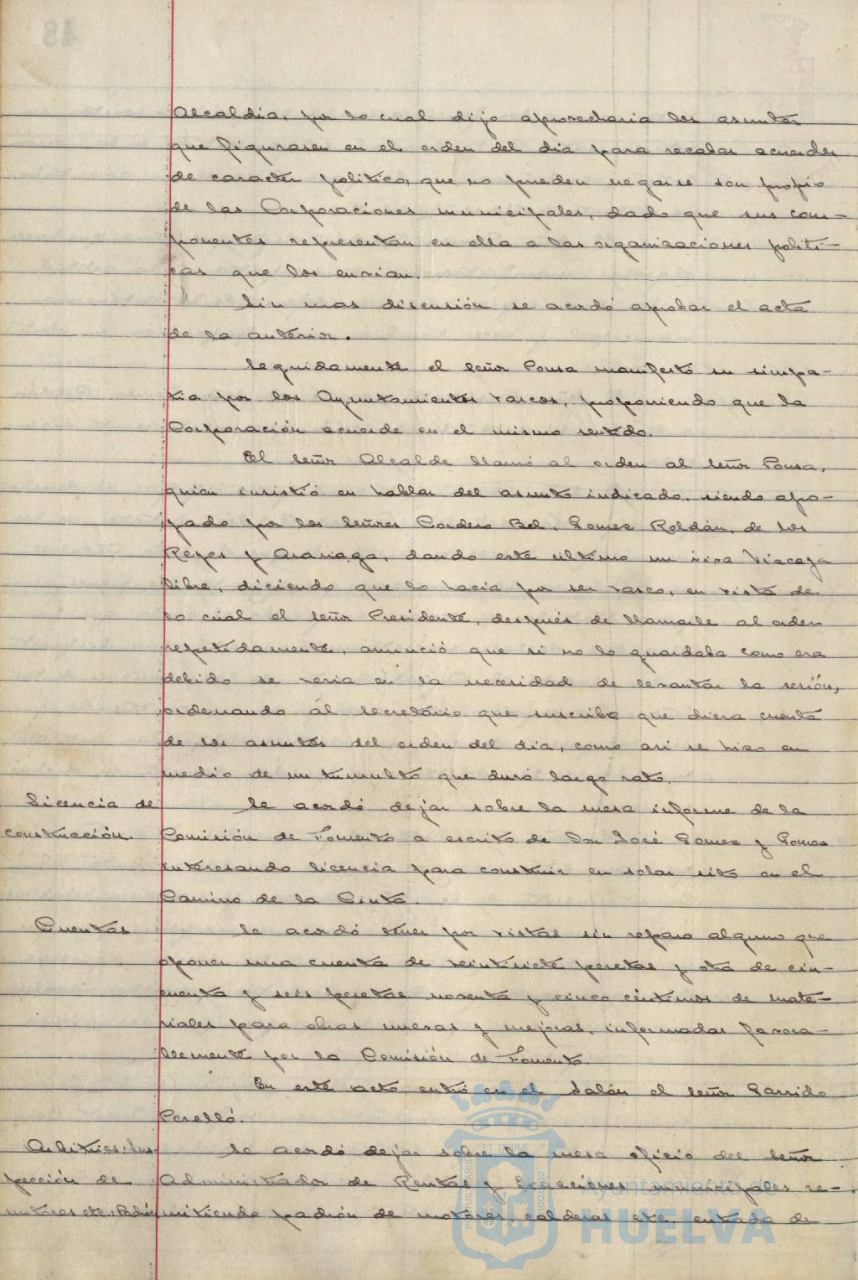 Alcaldia, por lo cual dijo aprovecharia los asuntos
que figurasen en el orden del dia para recabar acuerdos
de caracter politico, que no pueden negarse son propio
de las Corporaciones municipales, dado que sus com-
ponentes representan en ella a las organizaciones politi-
cas que los envian.
Sin mas discusión se acordó aprobar el acta
de la anterior.
Seguidamente el señor Ponsa manifestó su simpa-
tia por los Ayuntamientos vascos, proponiendo que la
Corporación acuerde en el mismo sentido.
El señor Alcalde llamó al orden al señor Ponsa,
quien insistió en hablar del asunto indicado, siendo apo-
yado por los señores Cordero Bel, Gomez Roldán, de los
Reyes y Arariaga, dando este ultimo un viva Viscaya
libre, diciendo que lo hacia por ser vasco, en vista de
lo cual el señor Presidente, después de llamarle al orden
repetidamente, anunció que si no lo guardaba como era
debido se veria en la necesidad de levantar la sesión,
ordenando al Secretario que suscribe que diera cuenta
de los asuntos del orden del dia, como asi se hizo en
medio de un tumulto que duró largo rato.
Licencia de
construcción.
Se acordó dejar sobre la mesa informe de la
Comisión de Fomento a escrito de Don José Gomez y Gomez
interesando licencia para construir en solar sito en el
Camino de la Cinta.
Cuentas
Se acordó tener por vistas sin reparo alguno que
oponer una cuenta de veintisiete pesetas y otra de cin-
cuenta y seis pesetas noventa y cinco céntimos de mate-
riales para obras nuevas y mejoras, informadas favora-
blemente por la Comisión de Fomento.
En este acto entró en el Salón el señor Garrido
Perelló.
Arbitrios: Ins-
pección de
motores etc: Padrón
Se acordó dejar sobre la mesa oficio del señor
Administrador de Rentas y Exacciones municipales re-
mitiendo padrón de motores calderas etc, entrada de
Ayuntamiento de
HUELVA